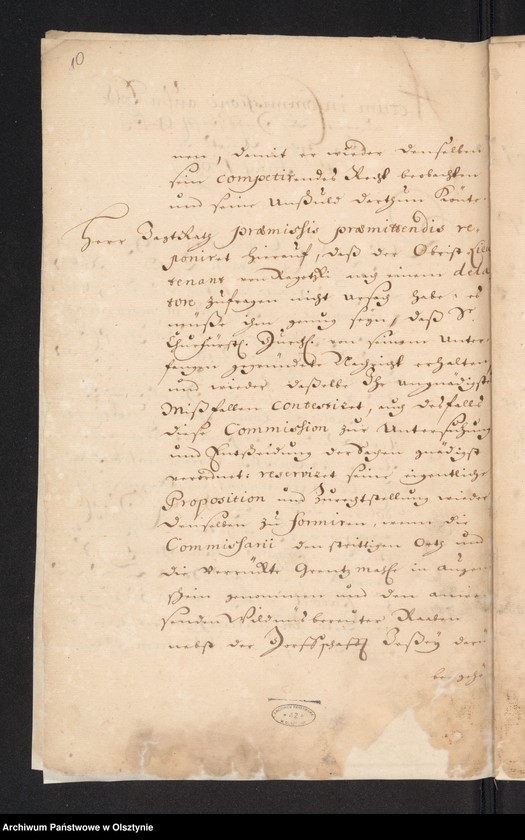 10
nen, damit er wieder denselben
sein competirendes Recht beobachten
und seine Unschuld darthun könte.
Herr JagtRath præmissis præmittendis re-
poniret hierauf, daß der Obrist Lieu
tenant von nach einem dela
tore zufragen nicht ursach habe, es
müste ihm genug seyn, daß Sr.
Churfürstl. Durchl. von seinem Unter-
fangen gegründete Nachricht erhalten,
und wieder daßelbe Ihr ungnädigstes
Mißfallen contestiret, auch desfalls
diese Commission zur Untersuchung
und Entscheidung der Sachen gnädigst
verordnet; reserviret seine eigentliche
Proposition und wieder
denselben zu formiren, wenn die
Commissarii den streittigen Orth und
die verrükte Grentz in Augen
schein genommen und den anwe-
senden Wildnüsbereuter Raaben
nebst der Dorffschafft
Archiwum Państwowe w Olsztynie